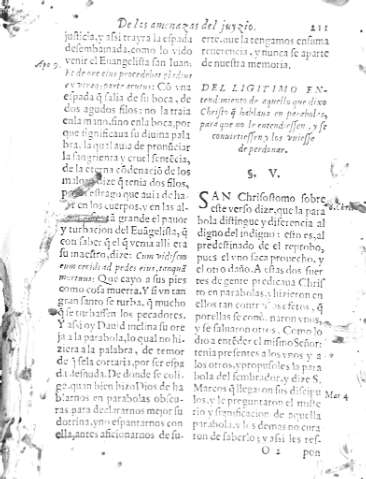 De las amenazas del juyzio. 211
justicia, y assi trayra la espada
desembainada. como lo vido
venir el Euangelista san Iuan:
Apo 9.
Có vna
espada q̃ salia de su boca, de
dos agudos filos: no la traia
en la mano, sino en la boca, por
que significaua su diuina pala
bra, la qual auia de pronúciar
la sangrienta y cruel sentécia,
de la eterna cõdenació de los
malos, dize q̃ tenia dos filos,
por el estrago que auia de ha
zer en los cuerpos, y en las al-
grande el pauor
y turbacion del Euãgelista, q̃
con saber q̃l q̃ venia alli era
su maestro, dize: Cum vidissem
eum cecidi ad pedes eius, tanquã
mortuus: Que cayo a sus pies
como cosa muerta. Y si vn tan
gran santo se turba, q̃ mucho
q̃ se turbassen los pecadores.
Y assi oy Dauid inclina su ore
ja a la parabola, lo qual no hi-
ziera a la palabra, de temor
de q̃ sela cortaria, por ser espa
da desnuda. De donde se coli-
ge, quan bien hizo Dios de ha
blarnos en parabolas obscu-
ras para declararnos mejor su
dotrina, y no espantarnos con
ella, antes aficionarnos de su-
erte, que la tengamos en suma
reuerencia, y nunca se aparte
de nuestra memoria.
DEL LIGITIMO EN-
tendimiento de aquello que dixo
Christo q̃ hablaua en parabolas,
para que no le entendiessen, y se
conuirtiessen y los vuiesse
de perdonar.
§. V.
SAN Chrisostomo sobre
este verso dize, que la para
bola distingue y diferencia al
digno del indigno: esto es, al
predestinado de el reprobo,
pues el vno saca prouecho, y el
otro daño. A estas dos suer-
tes de gente predicaua Chris
to en parabolas, e hizieron en
ellos tan contrarios fetos, q̃
por ellas se condenaron vnos,
y se saluaron otros. Como lo
dio a entéder el mismo Señor:
tenia presentes a los vnos y a
los otros, y propusoles la para
bola del sembrador, y dize S.
Marcos q̃ llegaron sus discipu
Mar 4
los, y le preguntaron el miste
rio y significacion de aquella
parabola, y los demas no cura
ron de saberlo: y assi les res-
O 2 pon